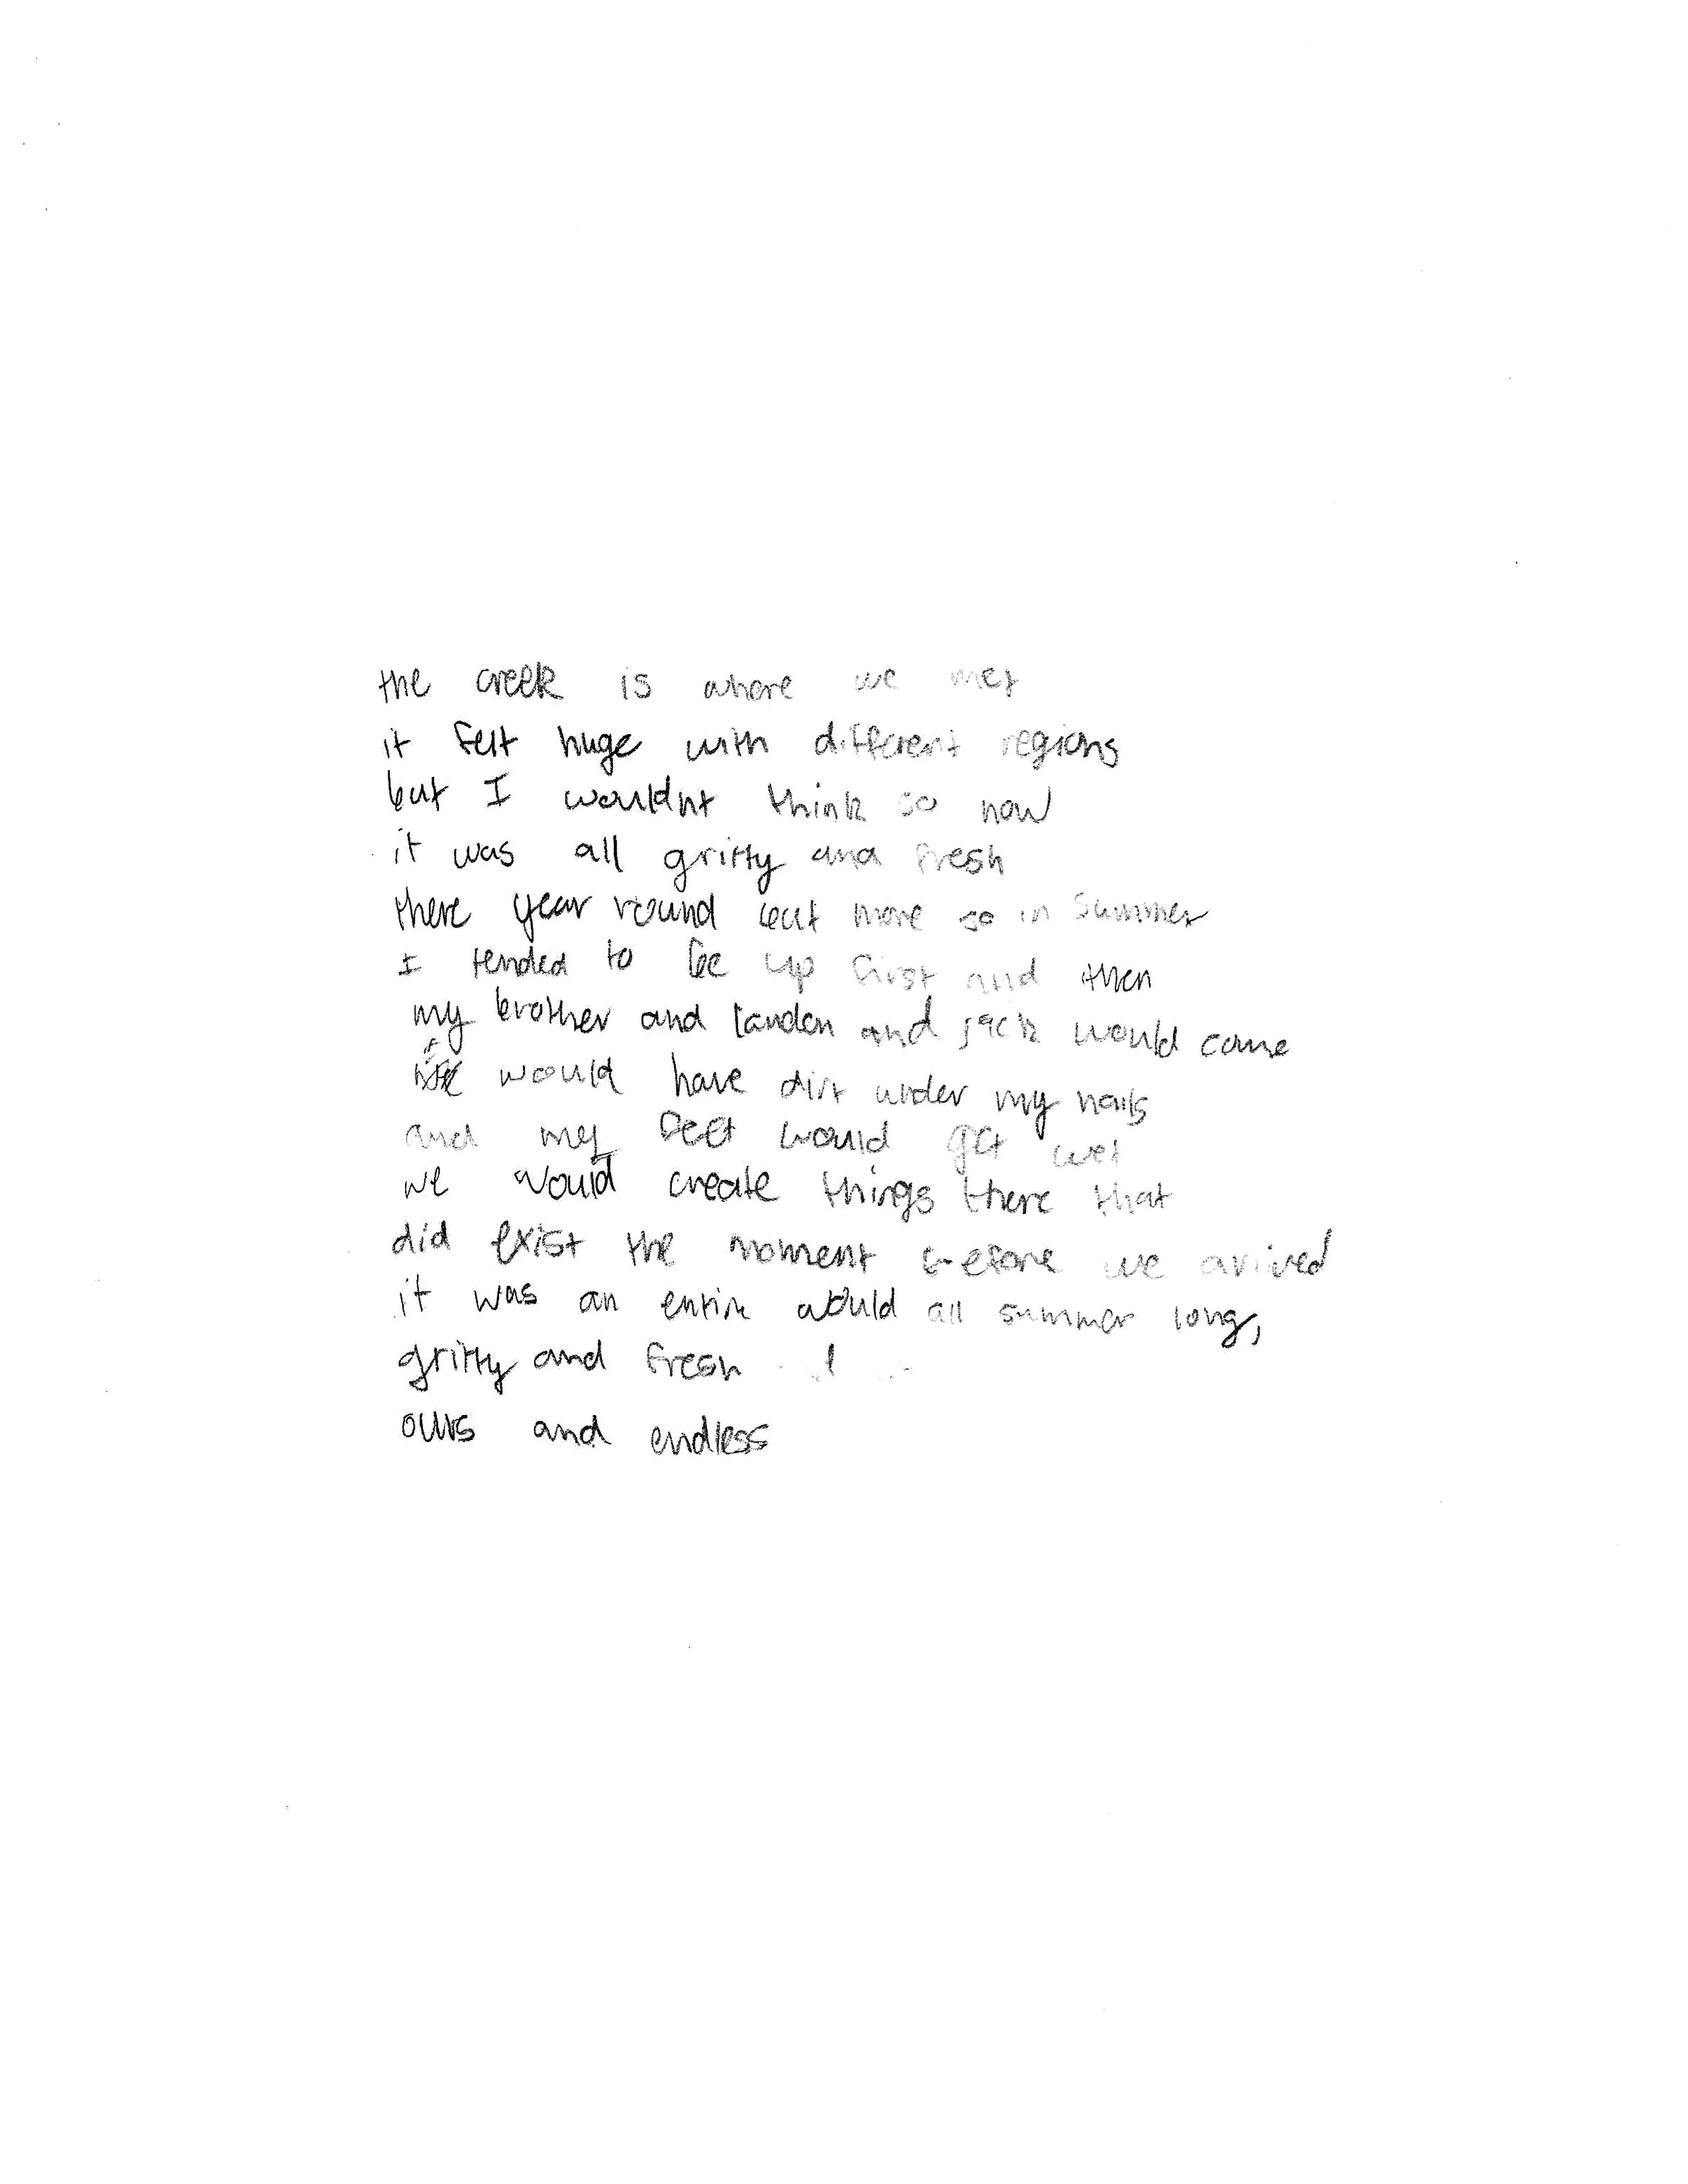 the creek is where we met
it felt huge with different regions
but I wouldnt think so now
it was all gritty and fresh
there year round but more so in summer
I tended to be up first and then
my brother and landon and jack would come
I would have dirt under my nails
and my feet would get wet
we would create things there that
did exist the moment before we arived
it was an entire would all summer long,
gritty and fresh
ours and endless